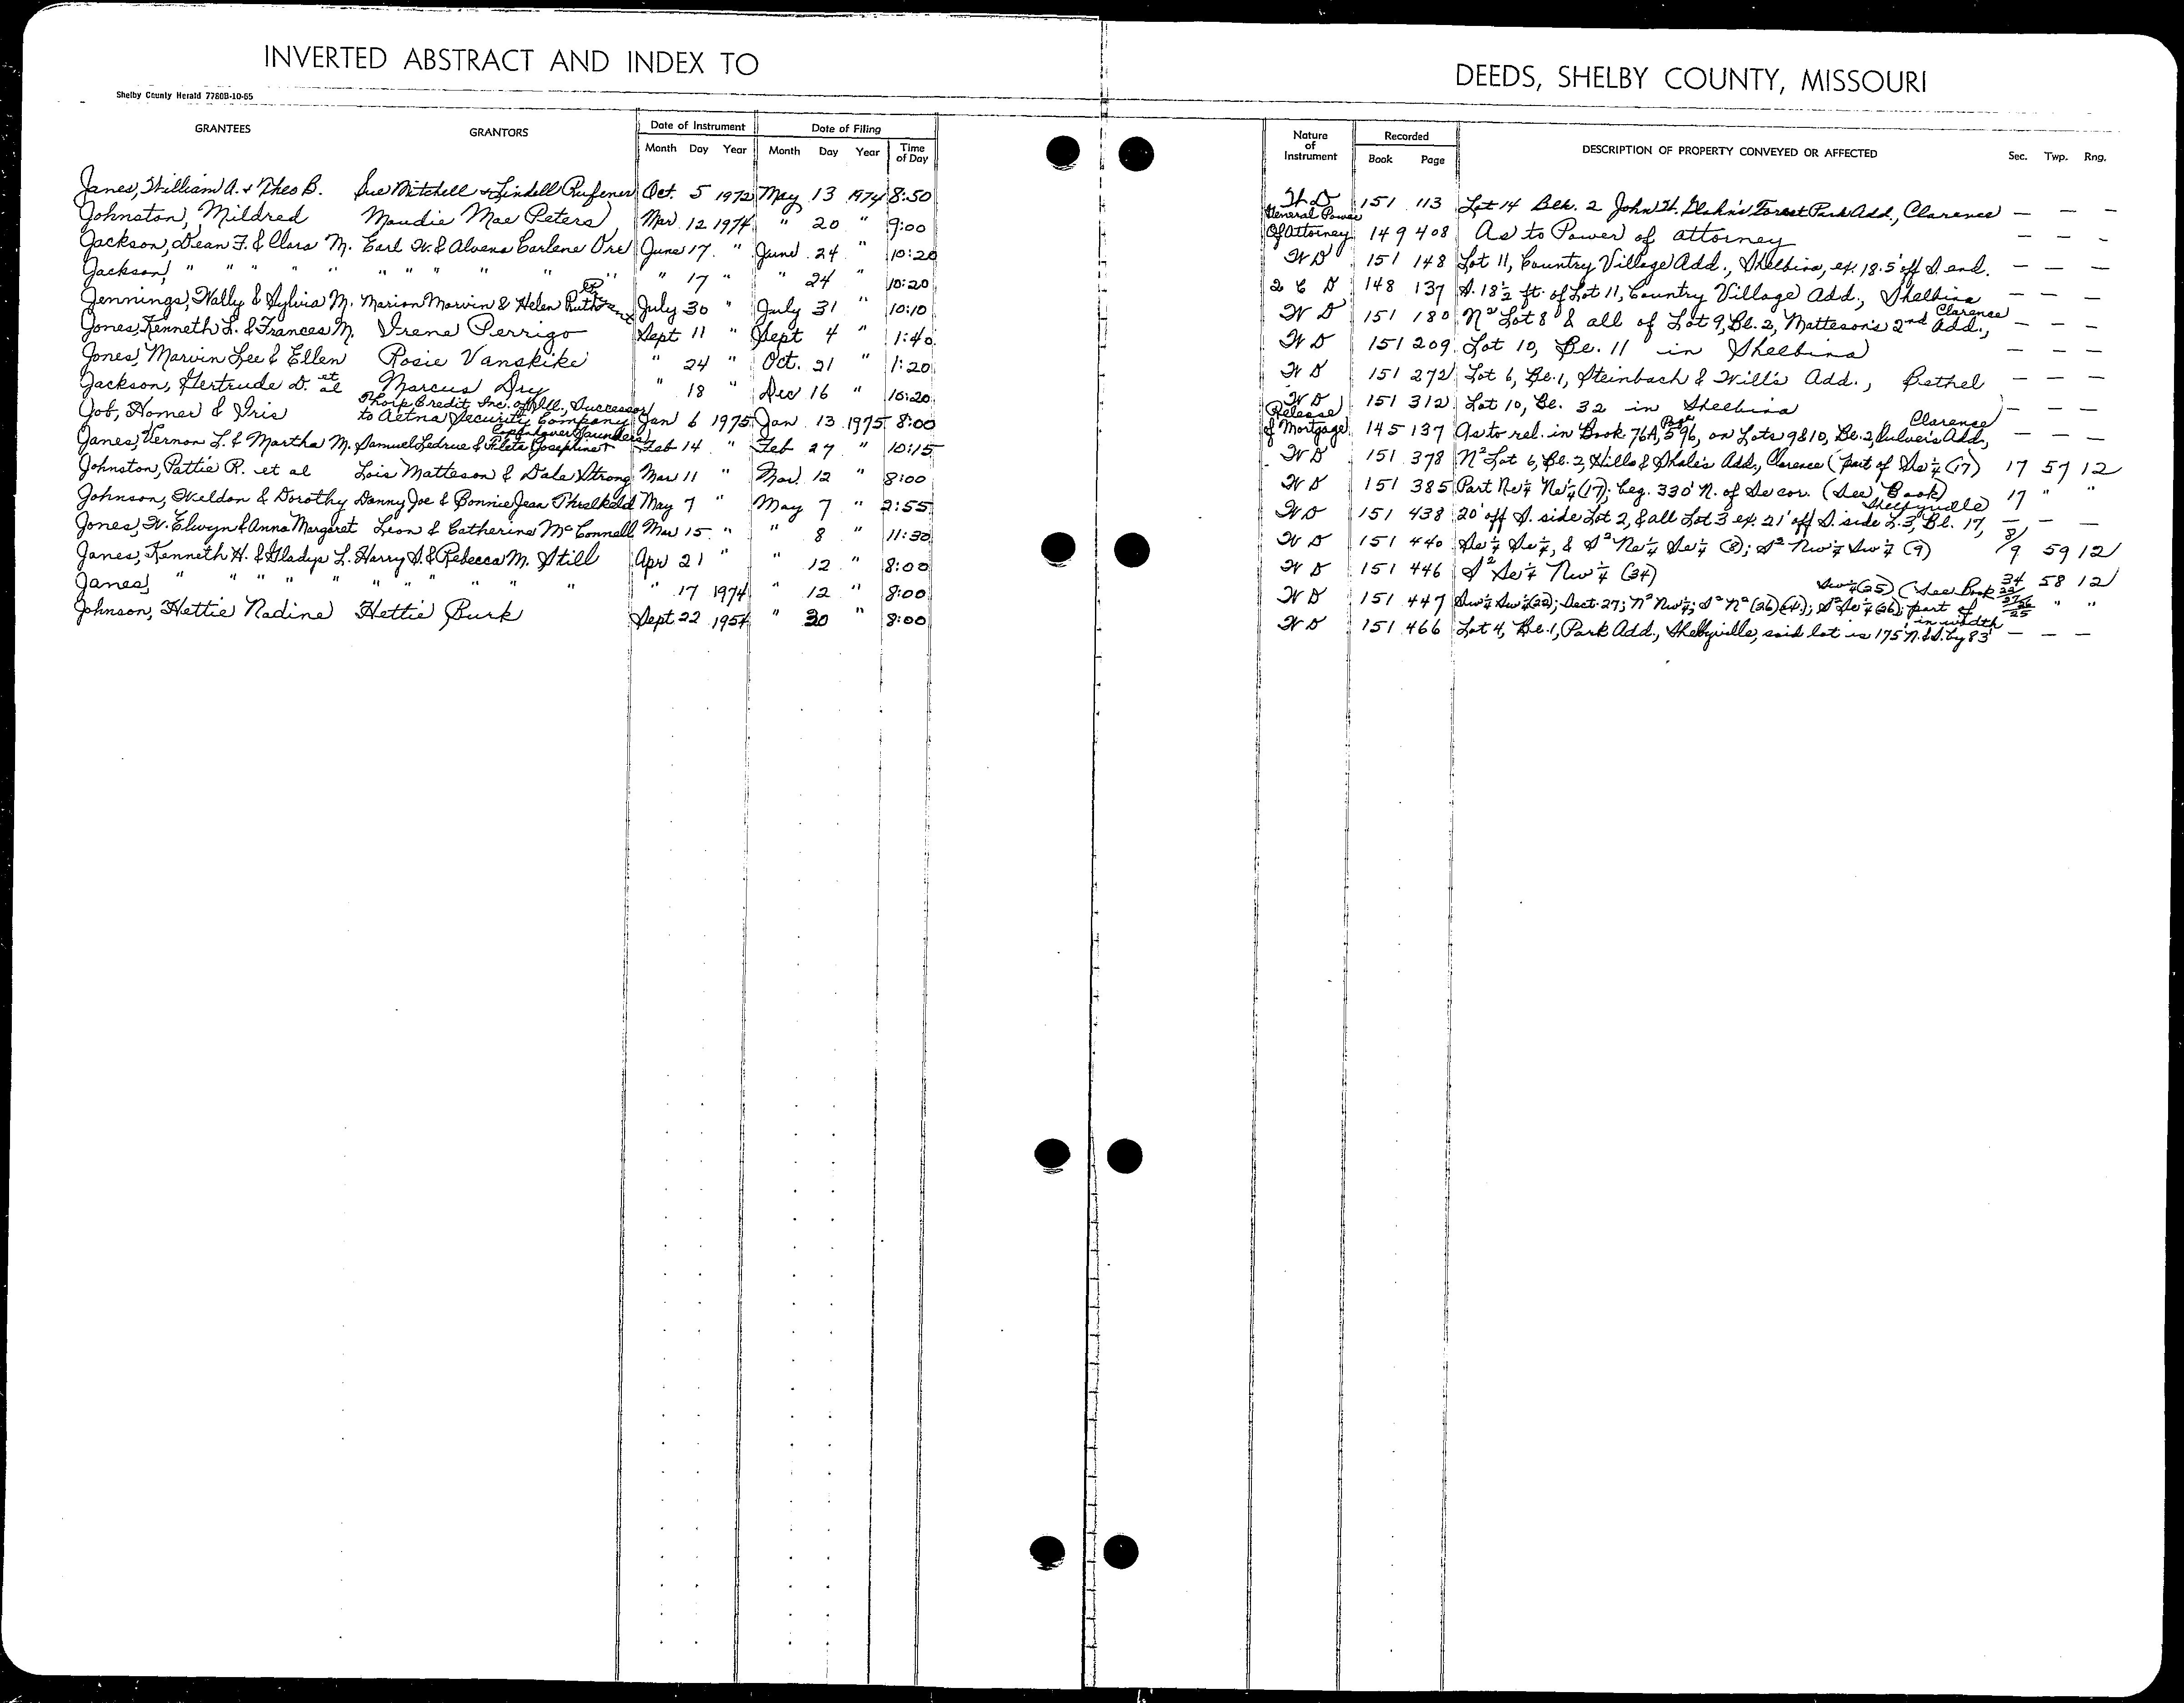 INVERTED ABSTRACT AND INDEX TO DEEDS, SHELBY COUNTY, MISSOURI
Shelby County Herald 7780B-10-65
GRANTEES GRANTORS Date of Instrument Date of Filing Nature of Instrument Recorded DESCRIPTION OF PROPERTY CONVEYED OR AFFECTED Sec. Twp. Rng.
Month Day Year Month Day Year Time of Day Book Page
Janes, William A. & Theo B. Sue Mitchell & Lindell Rufener Oct. 5 1972 May 13 1974 8:50 W D 151 113 Lot 14 Blk. 2 John H. Forest Park Add., Clarence — — —
Johnston, Mildred Maudie Mae Peters Mar 12 1974 " 20 " 9:00 General Power Of Attorney 149 408 As to Power of attorney — — —
Jackson, Dean F. & Clara M. Earl W. & Alvena Carlene Ore June 17 " June 24 " 10:20 W D 151 148 Lot 11, Country Village Add., Shelbina, ex. 18.5' off S. end. — — —
Jackson, " " " " " " " " " " " 17 " " 24 10:20 2 C D 148 137 S. 18 1/2 ft. of Lot 11, Country Village Add., Shelbina — — —
Jennings, Wally & Sylvia M. Marion Marvin & Helen Ruth July 30 " July 31 " 10:10 W D 151 180 N² Lot 8 & all of Lot 9, Bl. 2, Matteson's 2nd Add., Clarence — — —
Jones, Kenneth L. & Frances M. Irene Perrigo Sept 11 " Sept 4 " 1:40 W D 151 209 Lot 10, Bl. 11 in Shelbina — — —
Jones, Marvin Lee & Ellen Rosie Vanskike " 24 " Oct. 21 " 1:20 W D 151 272 Lot 6, Bl. 1, Steinbach & Will's Add., Bethel — — —
Jackson, Gertrude D. et al Marcus Dry " 18 " Dec 16 " 10:20 W D 151 312 Lot 10, Bl. 32 in Shelbina — — —
Job, Homer & Iris Thorp Credit Inc. of Ill., Successor to Aetna Security Company Jan 6 1975 Jan 13 1975 8:00 Release of Mortgage 145 137 As to rel. in Book 76A, Page 596, on Lots 9&10, Bl. 2, Culver's Add, Clarence — — —
Janes, Vernon L. & Martha M. Samuel Ledrue & Fleta Josephine Feb 14 " Feb 27 " 10:15 W D 151 378 N² Lot 6, Bl. 2, Hills & Shale's Add., Clarence (part of Se 1/4 (17) 17 57 12
Johnston, Pattie R. et al Lois Matteson & Dale Strong Mar 11 " Mar. 12 " 8:00 W D 151 385 Part Ne 1/4 Ne 1/4 (17); beg. 330' N. of Se cor. (See Book) 17 " "
Johnson, Weldon & Dorothy Danny Joe & Bonnie Jean Threlkeld May 7 " May 7 " 2:55 W D 151 438 20' off S. side Lot 2, & all Lot 3 ex. 21' off S. side L. 3, Bl. 17, Shelbyville — — —
Jones, W. Elwyn & Anna Margaret Leon & Catherine McConnell Mar 15 " " 8 " 11:30 W D 151 440 Se 1/4 Se 1/4, & S² Ne 1/4 Se 1/4 (8); S² Nw 1/4 Sw 1/4 (9) 8/9 59 12
Janes, Kenneth H. & Gladys L. Harry S. & Rebecca M. Still Apr 21 " " 12 " 8:00 W D 151 446 S² Se 1/4 Nw 1/4 (34) 34 58 12
Janes, " " " " " " " " " " " 17 1974 " 12 " 8:00 W D 151 447 Sw 1/4 Sw 1/4 (22); Sect. 27; N² Nw 1/4; S² N² (26); S² Se 1/4 (26); part of Sw 1/4 (25) (See Book " "
Johnson, Hettie Nadine Hettie Burk Sept 22 1954 " 30 " 8:00 W D 151 466 Lot 4, Bl. 1, Park Add., Shelbyville, said lot is 175' N. & S. by 83' in width — — —